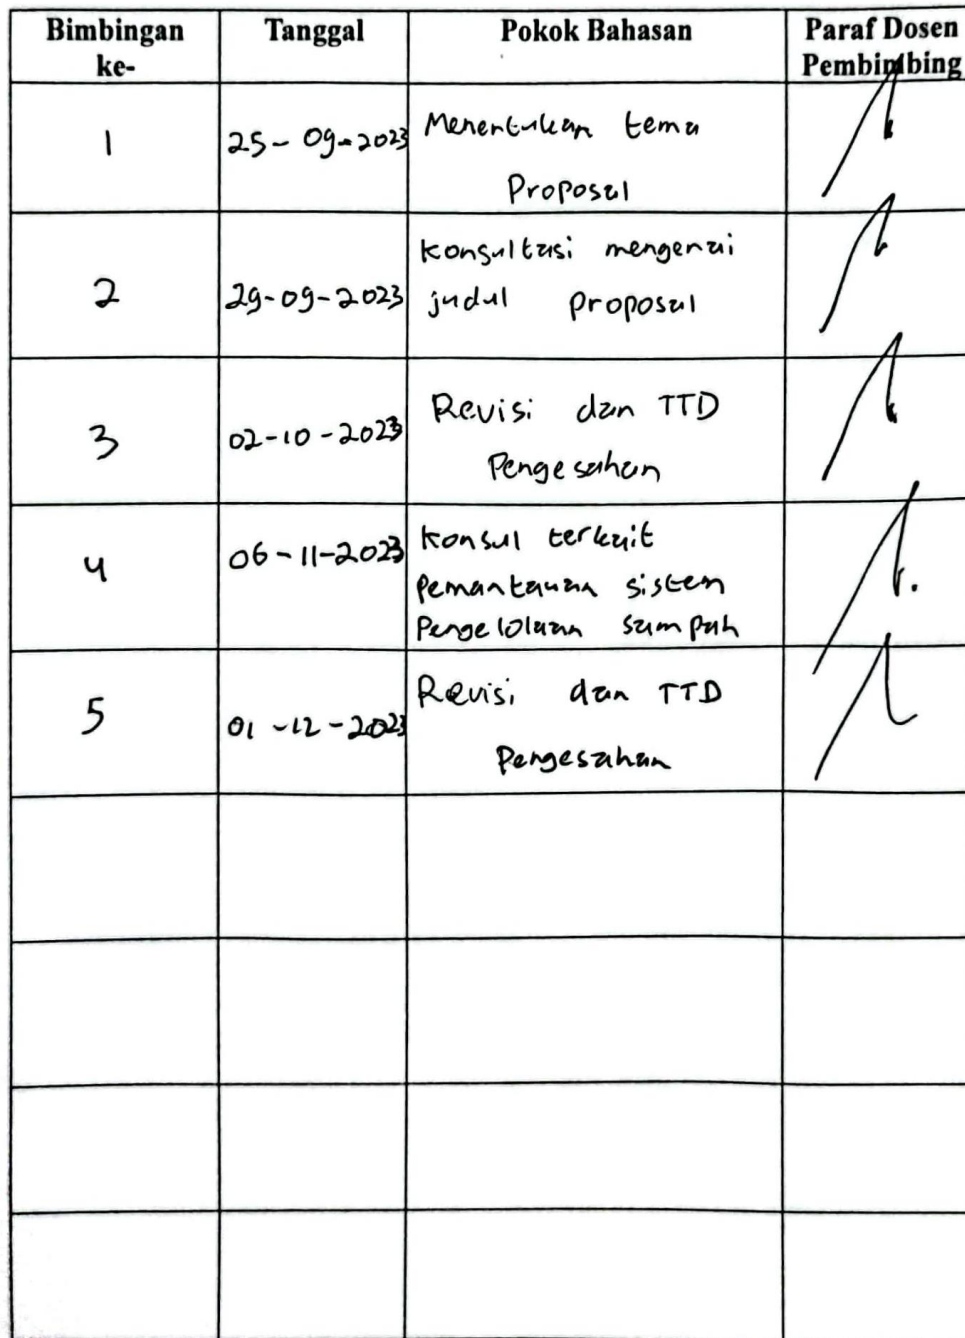 Bimbingan ke- Tanggal Pokok Bahasan Paraf Dosen Pembimbing
1 25-09-2023 Menentukan tema
Proposal
2 29-09-2023 Konsultasi mengenai
judul proposal
3 02-10-2023 Revisi dan TTD
Pengesahan
4 06-11-2023 Konsul terkait
Pemantauan sistem
Pengelolaan sampah
5 01-12-2023 Revisi dan TTD
Pengesahan